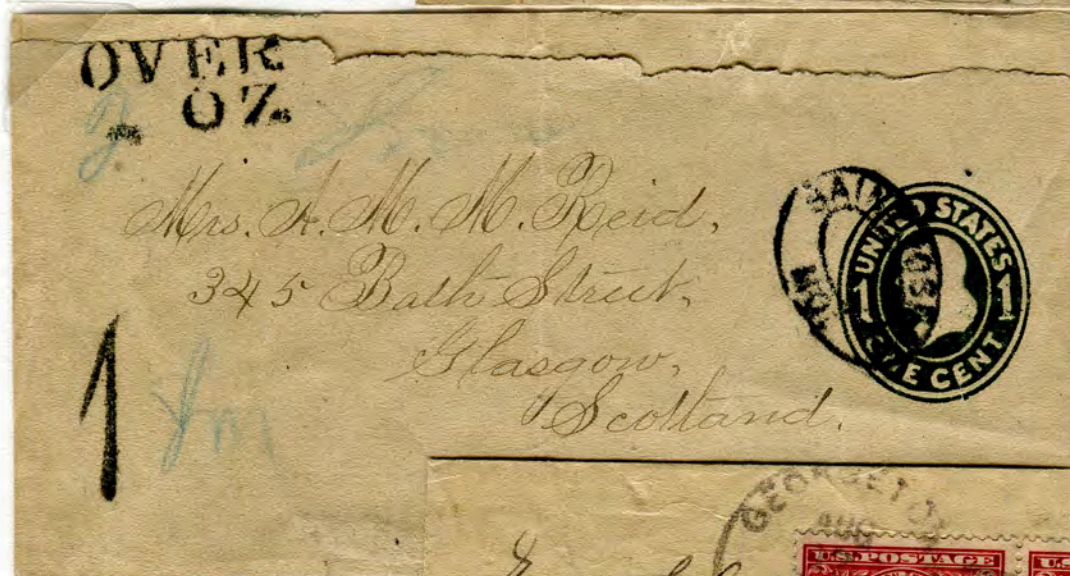 OVER
OZ.
Mrs. A. M. M. Reid,
345 Bath Street,
Glasgow,
Scotland.
1
UNITED STATES
1 1
ONE CENT
U.S. POSTAGE